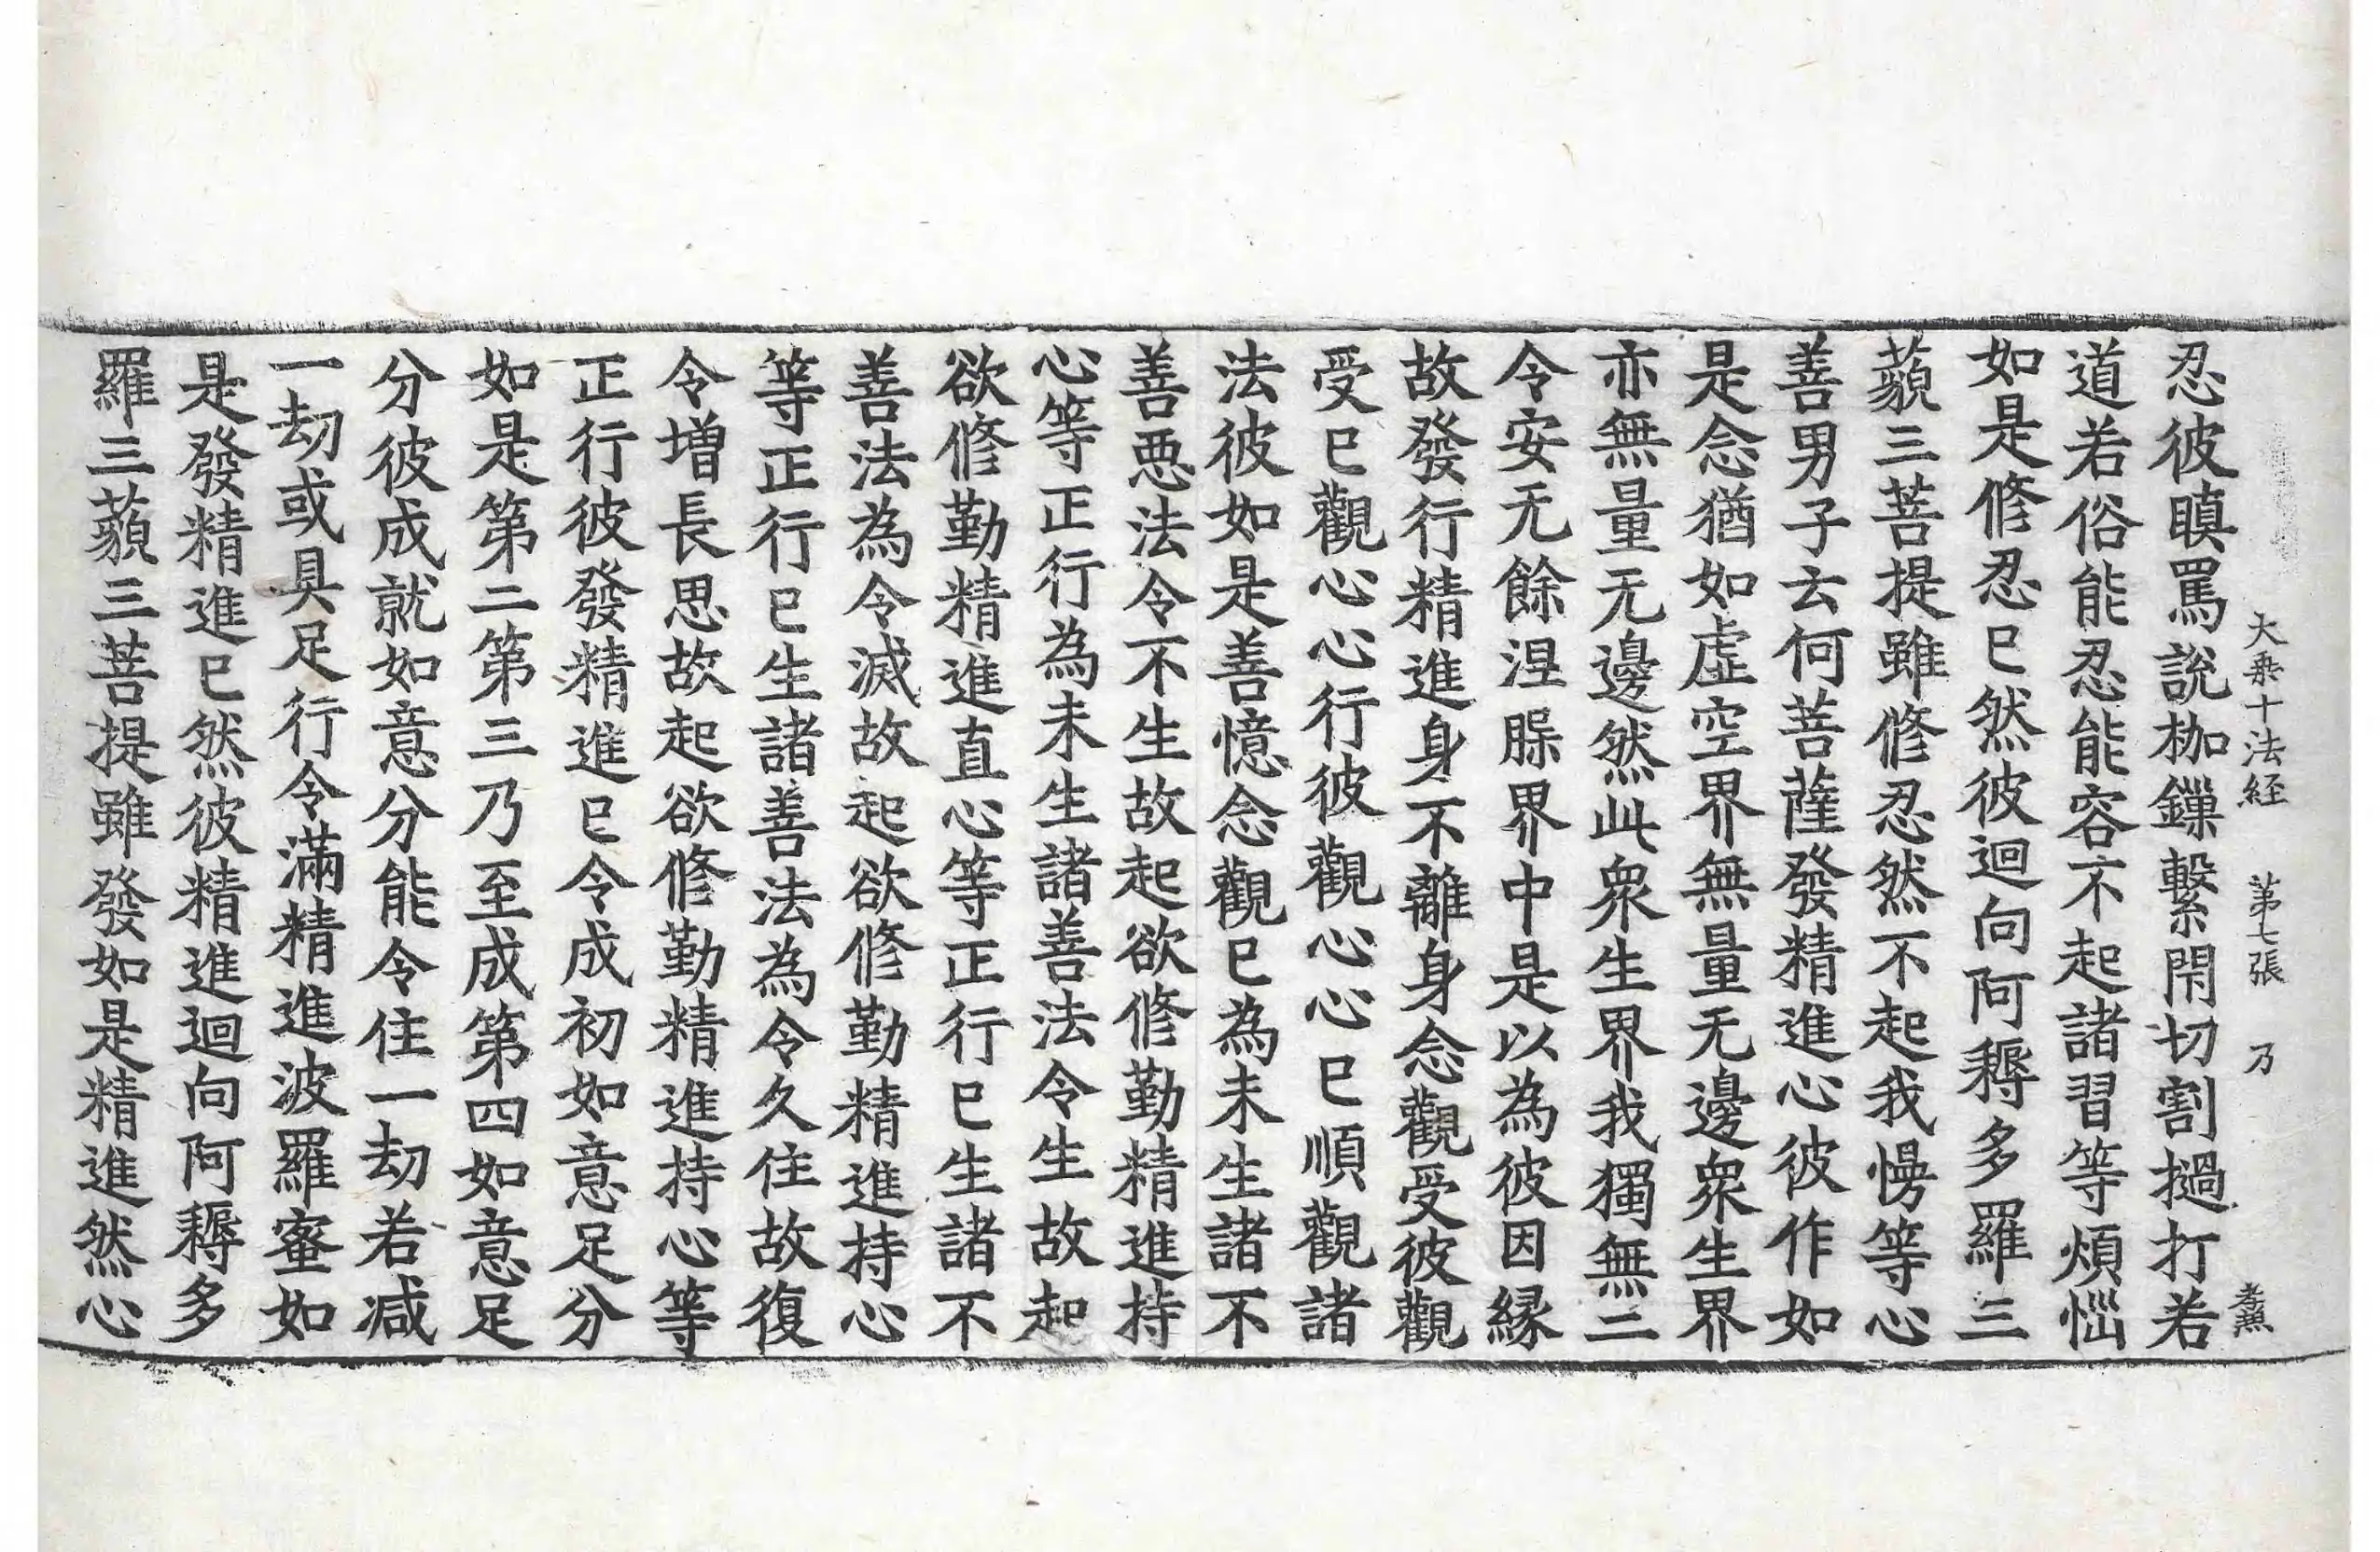 大乗十法経 第七張 乃 孝薫
忍彼瞋罵說枷鏁繫閇切割撾打若
道若俗能忍能容不起諸習等煩惱
如是修忍已然彼迴向阿耨多羅三
藐三菩提雖修忍然不起我慢等心
善男子云何菩薩發精進心彼作如
是念猶如虛空界無量无邊衆生界
亦無量无邊然此衆生界我獨無二
令安无餘涅槃界中是以為彼因緣
故發行精進身不離身念觀受彼觀
受已觀心心行彼觀心心已順觀諸
法彼如是善憶念觀已為未生諸不
善惡法令不生故起欲修勤精進持
心等正行為未生諸善法令生故起
欲修勤精進直心等正行已生諸不
善法為令滅故起欲修勤精進持心
等正行已生諸善法為令久住故復
令增長思故起欲修勤精進持心等
正行彼發精進已令成初如意足分
如是第二第三乃至成第四如意足
分彼成就如意分能令住一劫若减
一劫或具足行令滿精進波羅蜜如
是發精進已然彼精進迴向阿耨多
羅三藐三菩提雖發如是精進然心